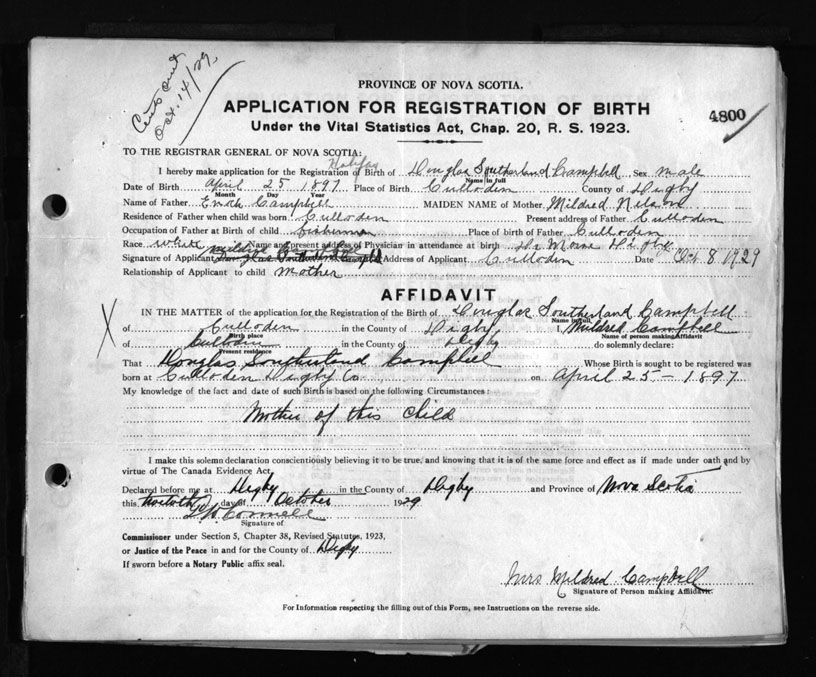 Cert's out
Oct. 14/29,
PROVINCE OF NOVA SCOTIA.
APPLICATION FOR REGISTRATION OF BIRTH
4800
Under the Vital Statistics Act, Chap. 20, R. S. 1923.
TO THE REGISTRAR GENERAL OF NOVA SCOTIA:
Halifax
I hereby make application for the Registration of Birth of Douglas Southerland Campbell Sex male
Name in full
Date of Birth April 25 1897 Place of Birth Culloden County of Digby
Month Day Year
Name of Father Campbell MAIDEN NAME of Mother Mildred Nelson
Residence of Father when child was born Culloden Present address of Father Culloden
Occupation of Father at Birth of child fisherman Place of birth of Father Culloden
Race white Name and present address of Physician in attendance at birth Dr Morse Digby
Signature of Applicant Mildred Campbell Address of Applicant Culloden Date Oct 8 1929
Relationship of Applicant to child mother
AFFIDAVIT
IN THE MATTER of the application for the Registration of the Birth of Douglas Southerland Campbell
Name in full
of Culloden in the County of Digby I, Mildred Campbell
Birth place Name of person making Affidavit
of Culloden in the County of Digby do solemnly declare:
Present residence
That Douglas Southerland Campbell Whose Birth is sought to be registered was
born at Culloden Digby Co on April 25 - 1897
My knowledge of the fact and date of such Birth is based on the following Circumstances:
Mother of this Child
I make this solemn declaration conscientiously believing it to be true, and knowing that it is of the same force and effect as if made under oath and by
virtue of The Canada Evidence Act.
Declared before me at Digby in the County of Digby and Province of Nova Scotia
this day of October 1929
Signature of
Commissioner under Section 5, Chapter 38, Revised Statutes, 1923,
or Justice of the Peace in and for the County of Digby
If sworn before a Notary Public affix seal.
Mrs Mildred Campbell
Signature of Person making Affidavit.
For Information respecting the filling out of this Form, see Instructions on the reverse side.